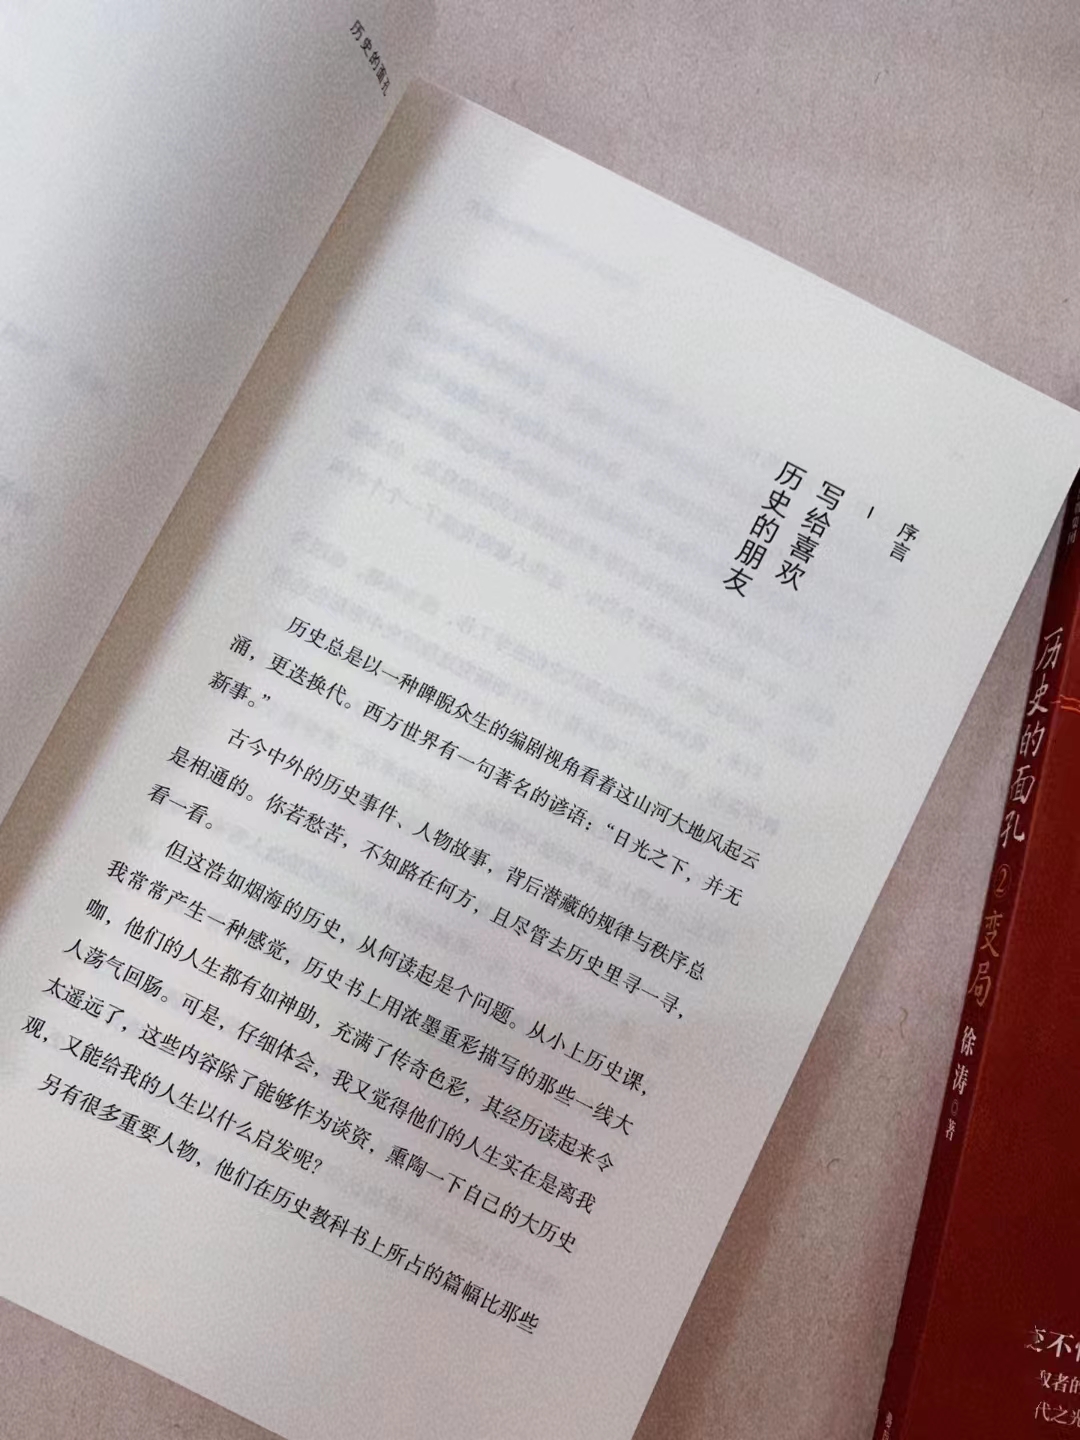 历史的面孔
序言
写给喜欢
历史的朋友
历史总是以一种睥睨众生的编剧视角看着这山河大地风起云
涌，更迭换代。西方世界有一句著名的谚语：“日光之下，并无
新事。”
古今中外的历史事件、人物故事，背后潜藏的规律与秩序总
是相通的。你若愁苦，不知路在何方，且尽管去历史里寻一寻，
看一看。
但这浩如烟海的历史，从何读起是个问题。从小上历史课，
我常常产生一种感觉，历史书上用浓墨重彩描写的那些一线大
咖，他们的人生都有如神助，充满了传奇色彩，其经历读起来令
人荡气回肠。可是，仔细体会，我又觉得他们的人生实在是离我
太遥远了，这些内容除了能够作为谈资，熏陶一下自己的大历史
观，又能给我的人生以什么启发呢？
另有很多重要人物，他们在历史教科书上所占的篇幅比那些
历史的面孔②变局 徐涛◎著
不
者的
代之光